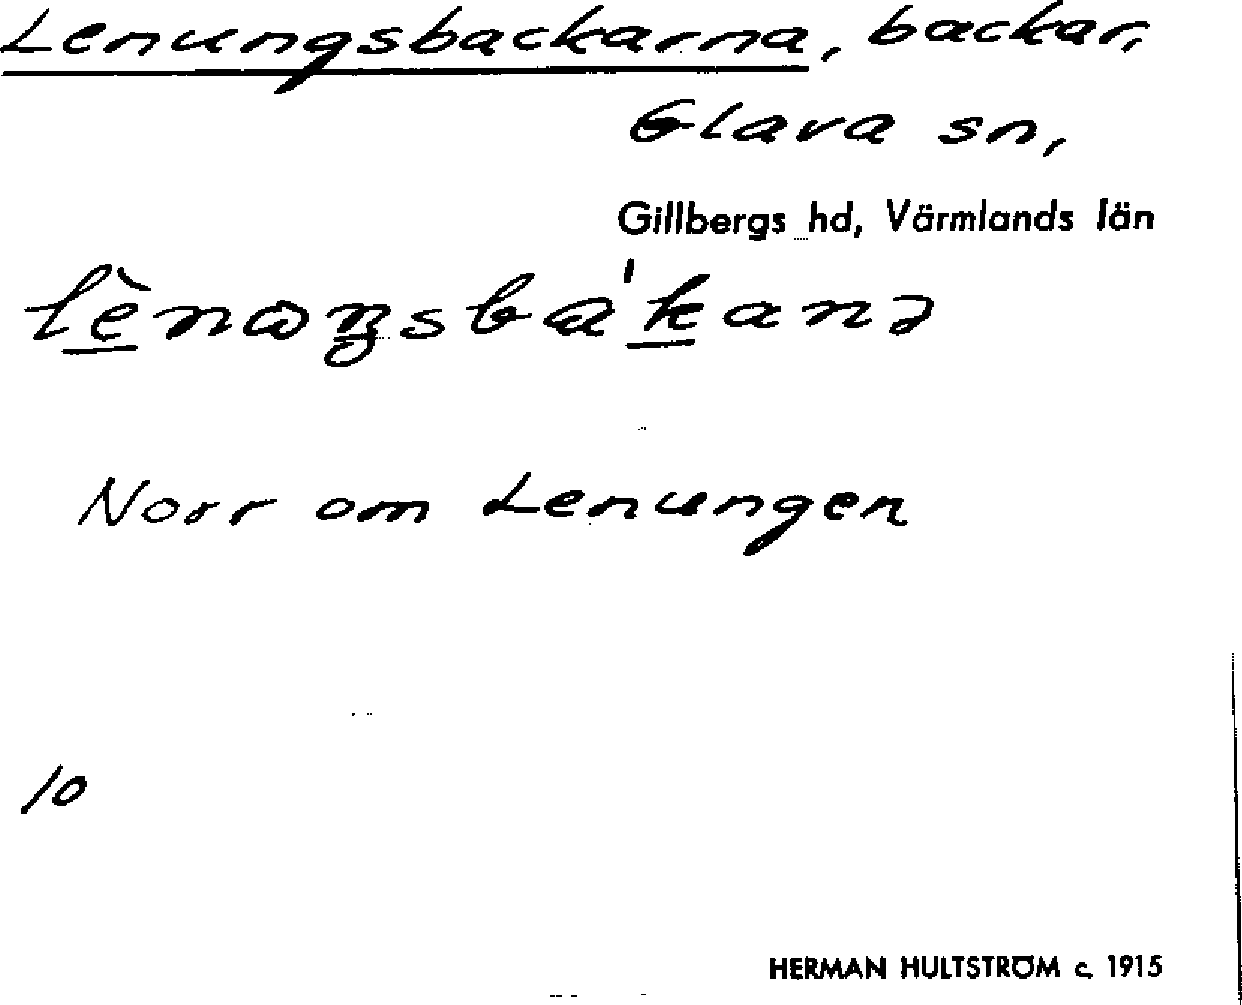 Lenungsbackarna, backar,
Glava sn,
Gillbergs hd, Värmlands län
Norr om Lenungen
10
HERMAN HULTSTRÖM c. 1915